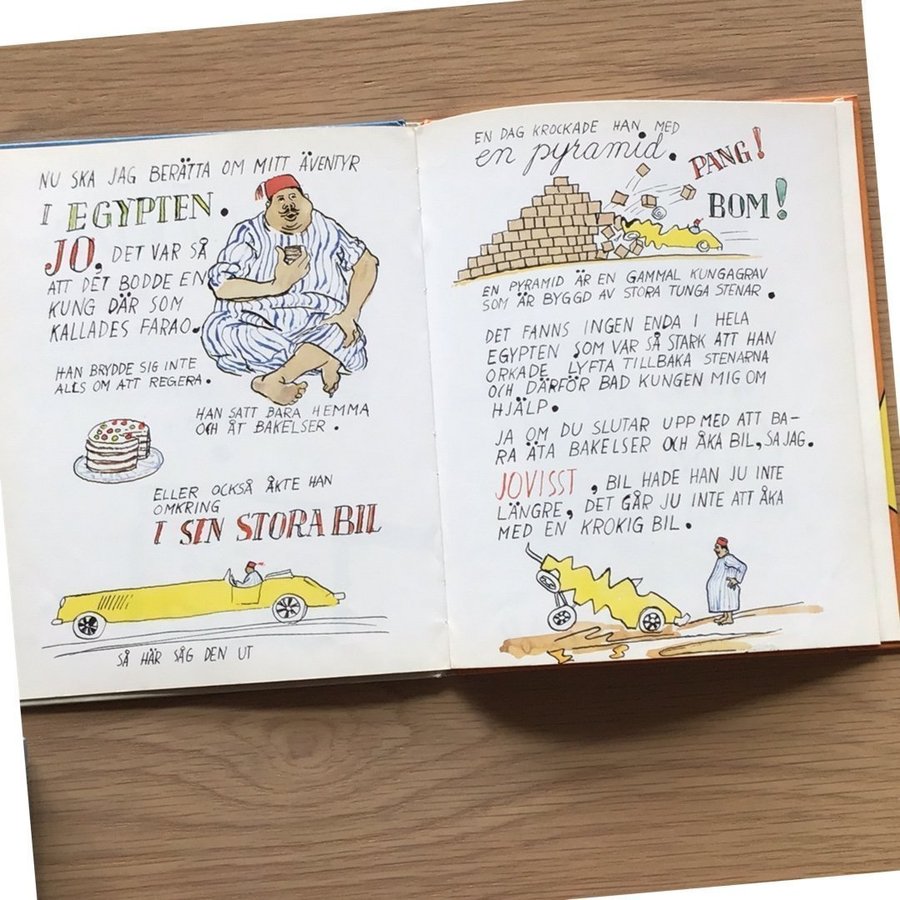 NU SKA JAG BERÄTTA OM MITT ÄVENTYR
I EGYPTEN.
JO, DET VAR SÅ
ATT DET BODDE EN
KUNG DÄR SOM
KALLADES FARAO.
HAN BRYDDE SIG INTE
ALLS OM ATT REGERA.
HAN SATT BARA HEMMA
OCH ÅT BAKELSER.
ELLER OCKSÅ ÅKTE HAN
OMKRING
I SIN STORA BIL
SÅ HÄR SÅG DEN UT
EN DAG KROCKADE HAN MED
en pyramid.
PANG!
BOM!
EN PYRAMID ÄR EN GAMMAL KUNGAGRAV
SOM ÄR BYGGD AV STORA TUNGA STENAR.
DET FANNS INGEN ENDA I HELA
EGYPTEN SOM VAR SÅ STARK ATT HAN
ORKADE LYFTA TILLBAKA STENARNA
OCH DÄRFÖR BAD KUNGEN MIG OM
HJÄLP.
JA OM DU SLUTAR UPP MED ATT BA-
RA ÄTA BAKELSER OCH ÅKA BIL, SA JAG.
JOVISST, BIL HADE HAN JU INTE
LÄNGRE, DET GÅR JU INTE ATT ÅKA
MED EN KROKIG BIL.